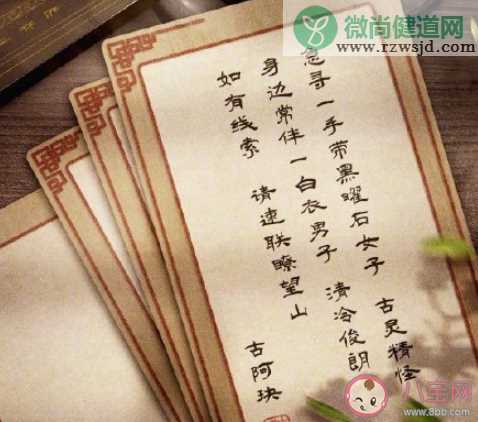 微尚健道网
www.rzwsjd.com
急寻一手带黑曜石女子 古灵精怪
身边常伴一白衣男子 清冷俊朗
如有线索 请速联瞭望山
古阿玦
八宝网
www.8bb.com